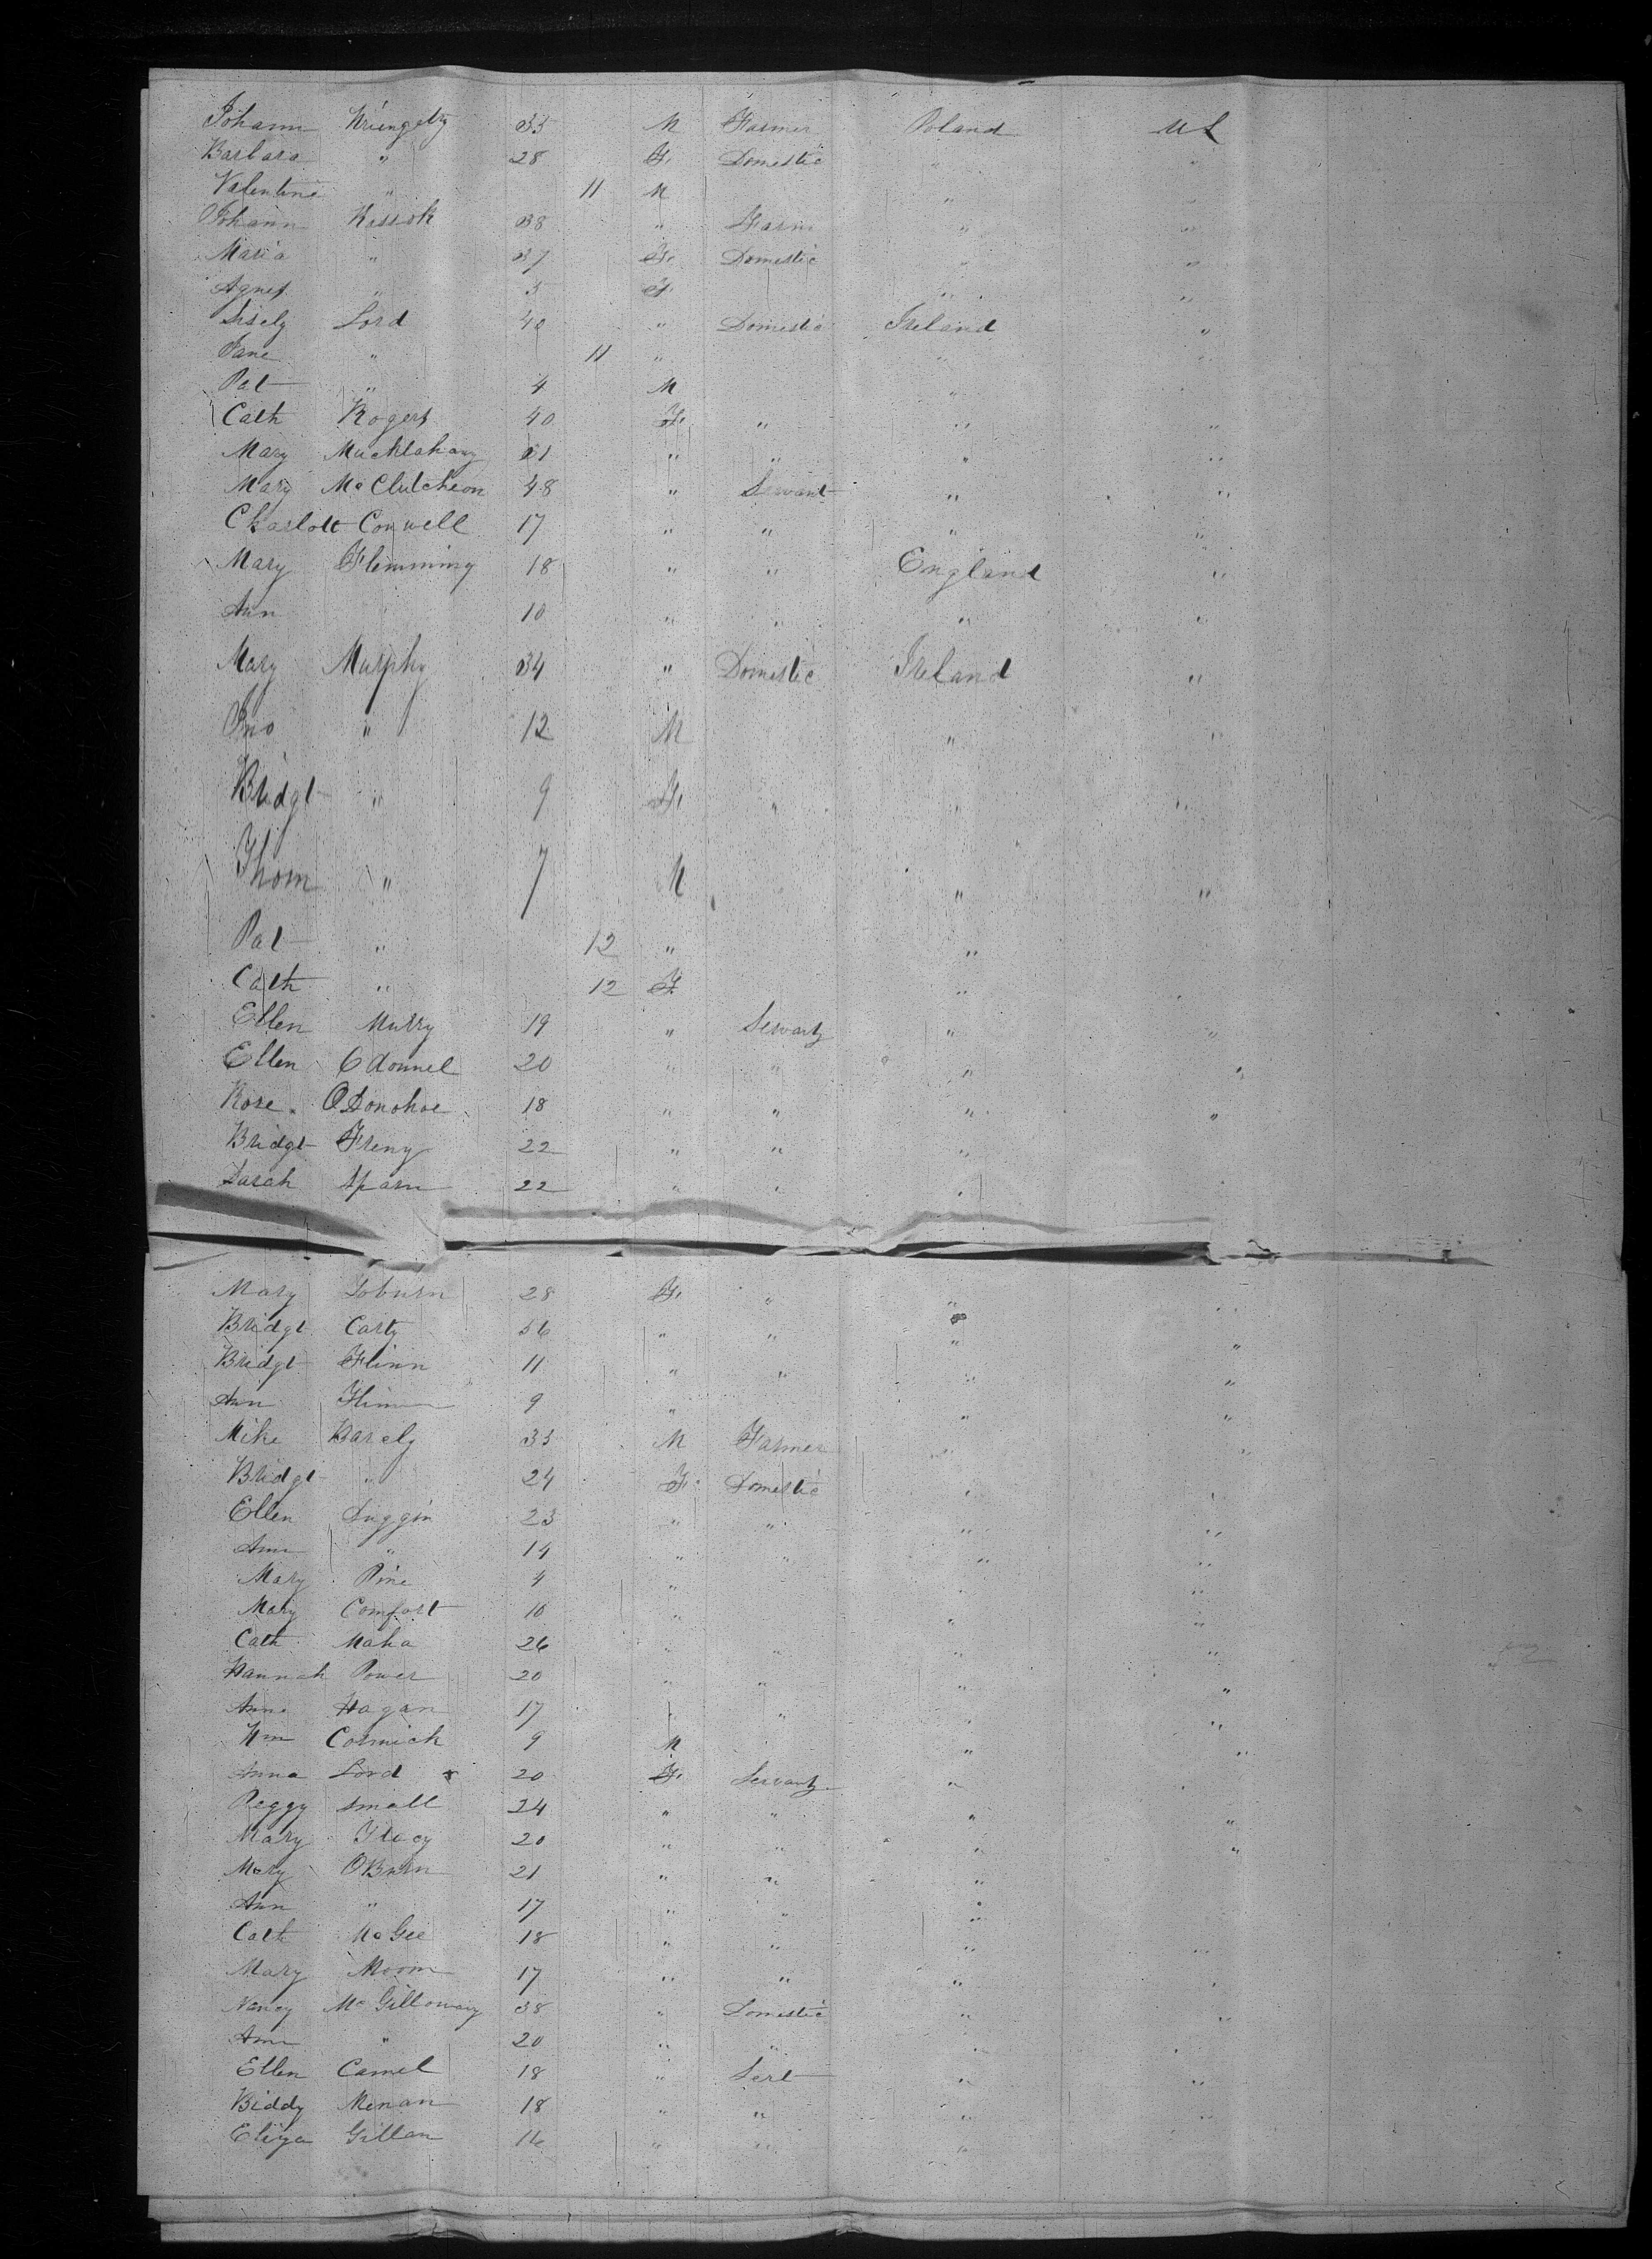 Johann 35 M Farmer Poland U S
Barbara " 28 F. Domestic " "
Valentine " 11 M " "
Johann Kossok 38 " Farm " "
Maria " 37 F. Domestic " "
Agnes " 5 F. " "
Sisely Lord 40 " Domestic Ireland "
Jane " 11 " " "
Pat " 4 M "
Cath Rogers 40 F. " " "
Mary 21 " " " "
Mary McClutcheon 48 " Servant " "
Charlott Conwell 17 " " " "
Mary Flemming 18 " " England "
Ann 10 " " " "
Mary Murphy 34 " Domestic Ireland "
Jno " 12 M " "
Bridgt " 9 F. " " "
Thom " 7 M " "
Pat " 12 " "
Cath " 12 F. " "
Ellen Murry 19 " " "
Ellen Odonnel 20 " " " "
Rose. O'Donohoe 18 " " " "
Bridgt Freny 22 " " "
Sarah 22 " " "
Mary 28 F. " " "
Bridgt Carty " " " "
Bridgt Flinn 11 " " " "
Ann Flinn 9 " " "
Mike 35 M Farmer " "
Bridgt " 24 F. Domestic " "
Ellen Duggin 23 " " " "
Ann " 14 " " " "
Mary Pine 4 " " "
Mary Comfort 10 " " "
Cath Maha 26 " " " "
Hannah Power 20 " " " "
Anne Hagan 17 " " " "
Wm Cormick 9 M " "
Anna Lord 20 F. " "
Peggy Small 24 " " " "
Mary 20 " " " "
Mary OBurn 21 " " "
Ann " 17 " " "
Cath McGee 18 " " " "
Mary Moom 17 " " " "
Nancy McGilloway 38 " Domestic " "
Ann " 20 " " " "
Ellen Camel 18 " " "
Biddy Menan 18 " " " "
Eliza Gillan 16 " " "